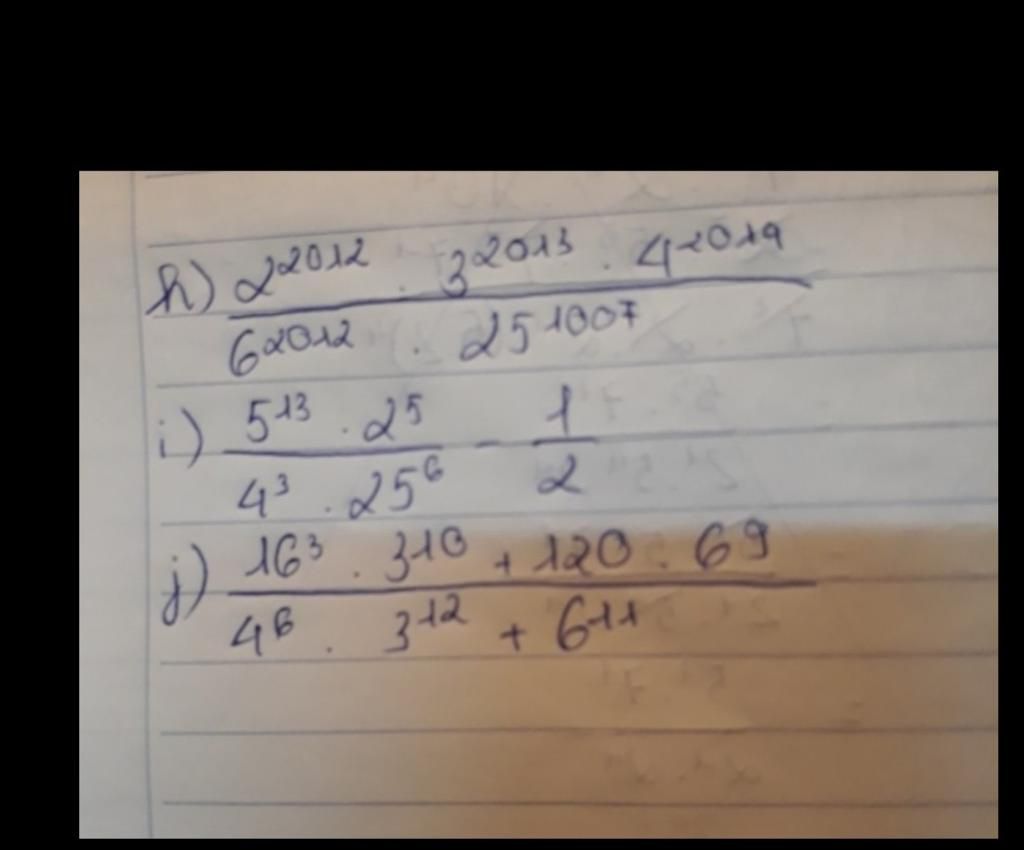 h) \frac{2^{2012} \cdot 3^{2013} \cdot 4^{2019}}{6^{2012} \cdot 25^{1007}}
i) \frac{5^{13} \cdot 2^5}{4^3 \cdot 25^6} - \frac{1}{2}
j) \frac{16^3 \cdot 3^{10} + 120 \cdot 6^9}{4^6 \cdot 3^{12} + 6^{11}}